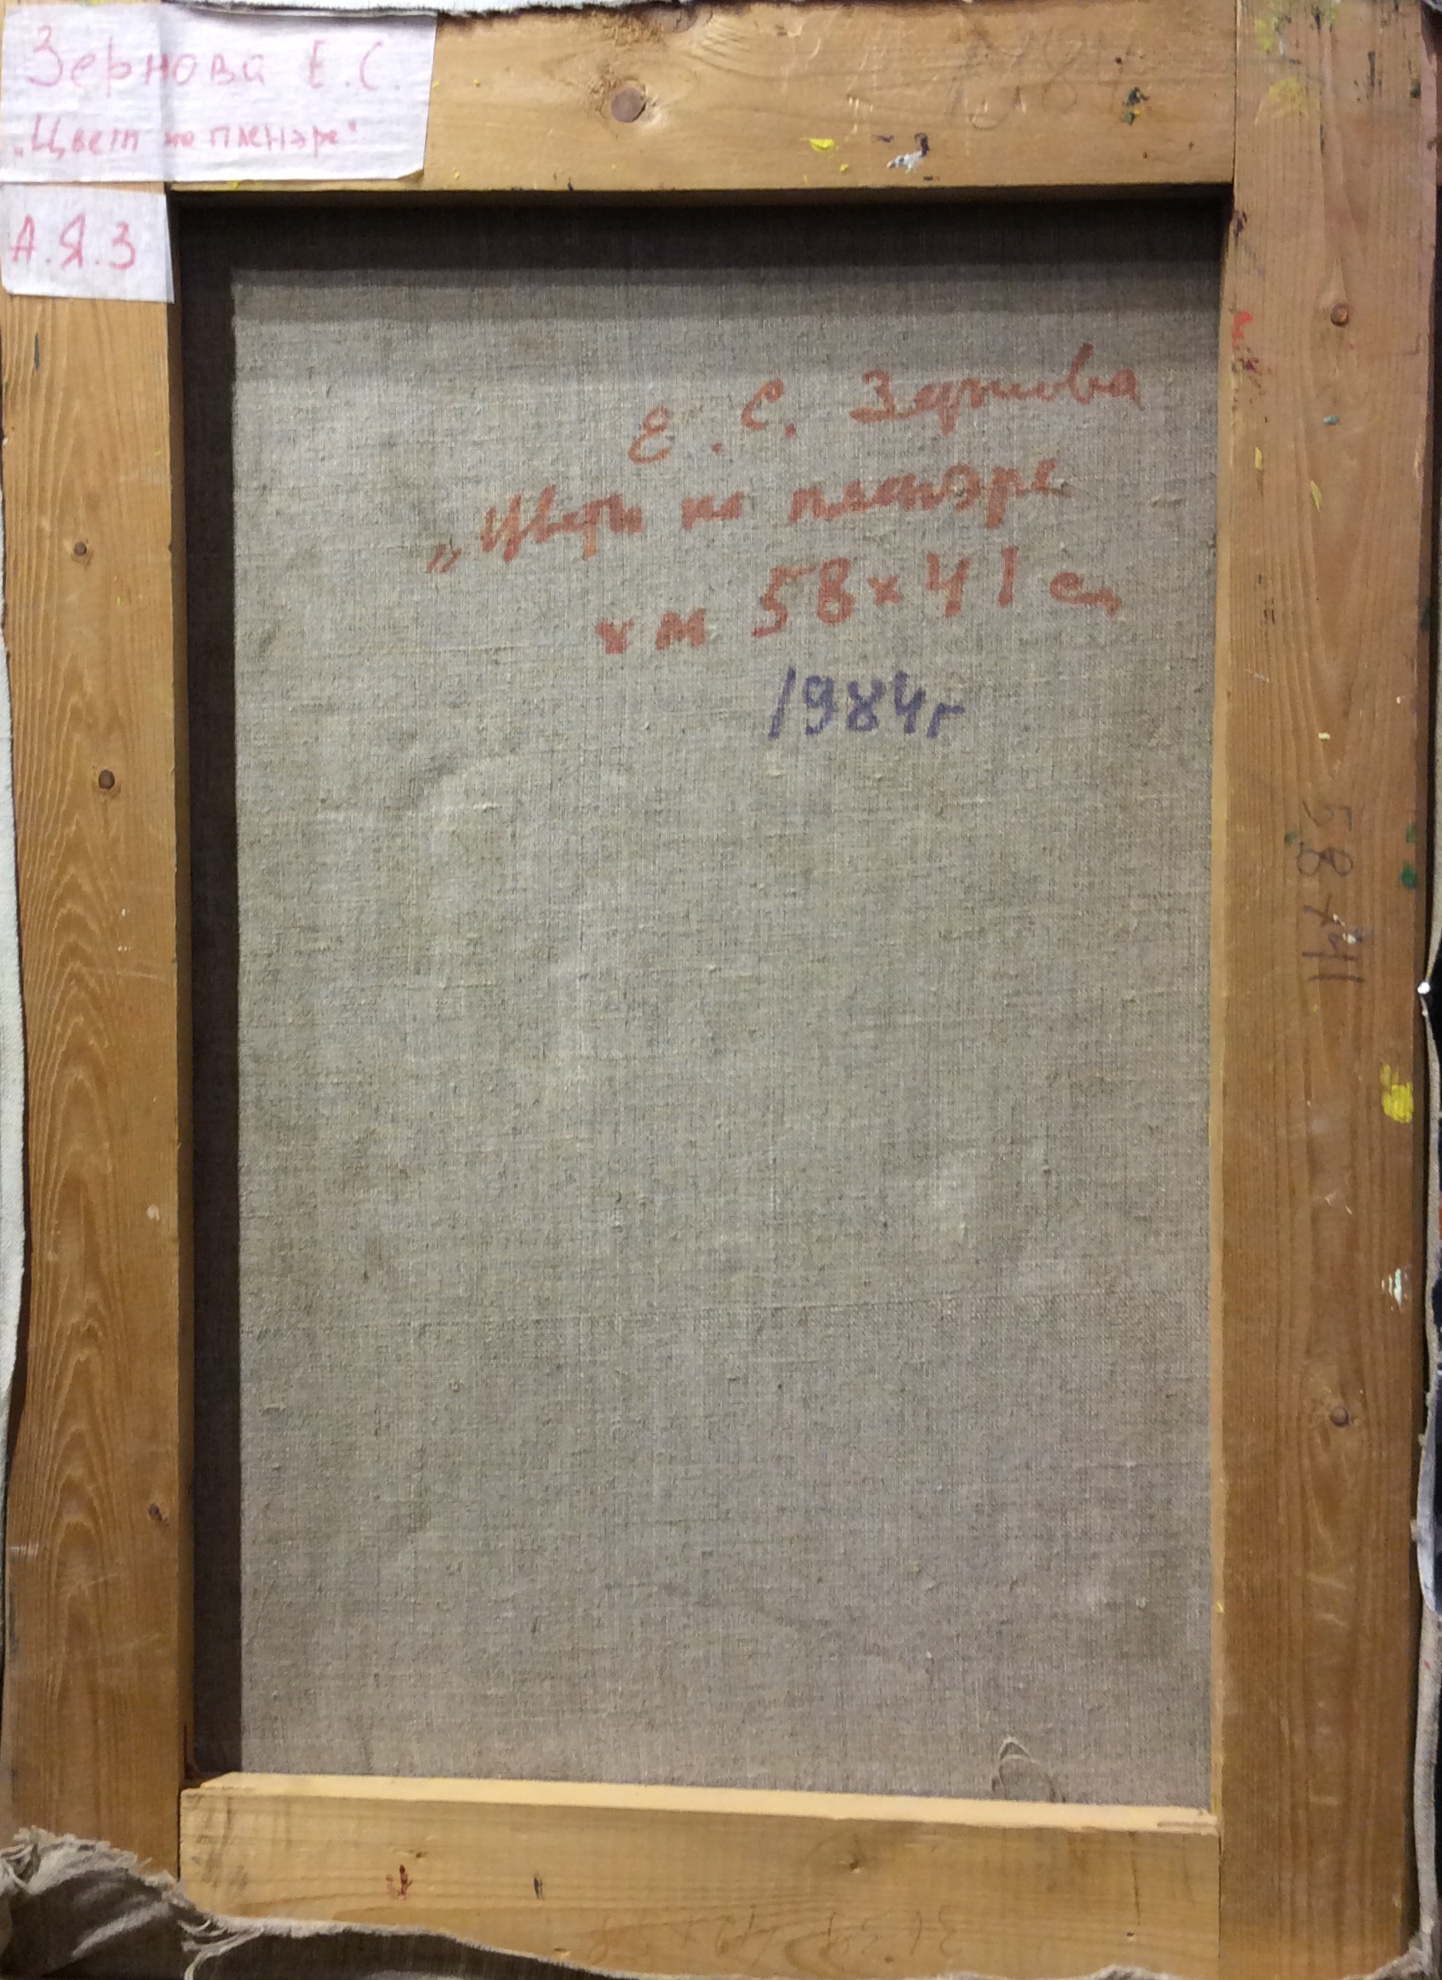 Зернова Е.С.
„Цвет на пленэре"
А.Я.З
1984
Е.С. Зернова
„Цветы на пленэре
х м 58х41 см
1984г
58х41